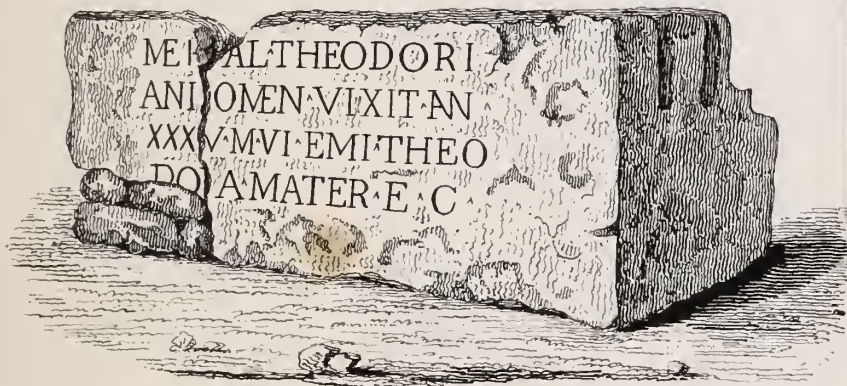 MEI AL·THEODORI
ANI OMEN·VIXIT·AN
XXXV·M·VI·EMI·THEO
DO A·MATER·E·C·